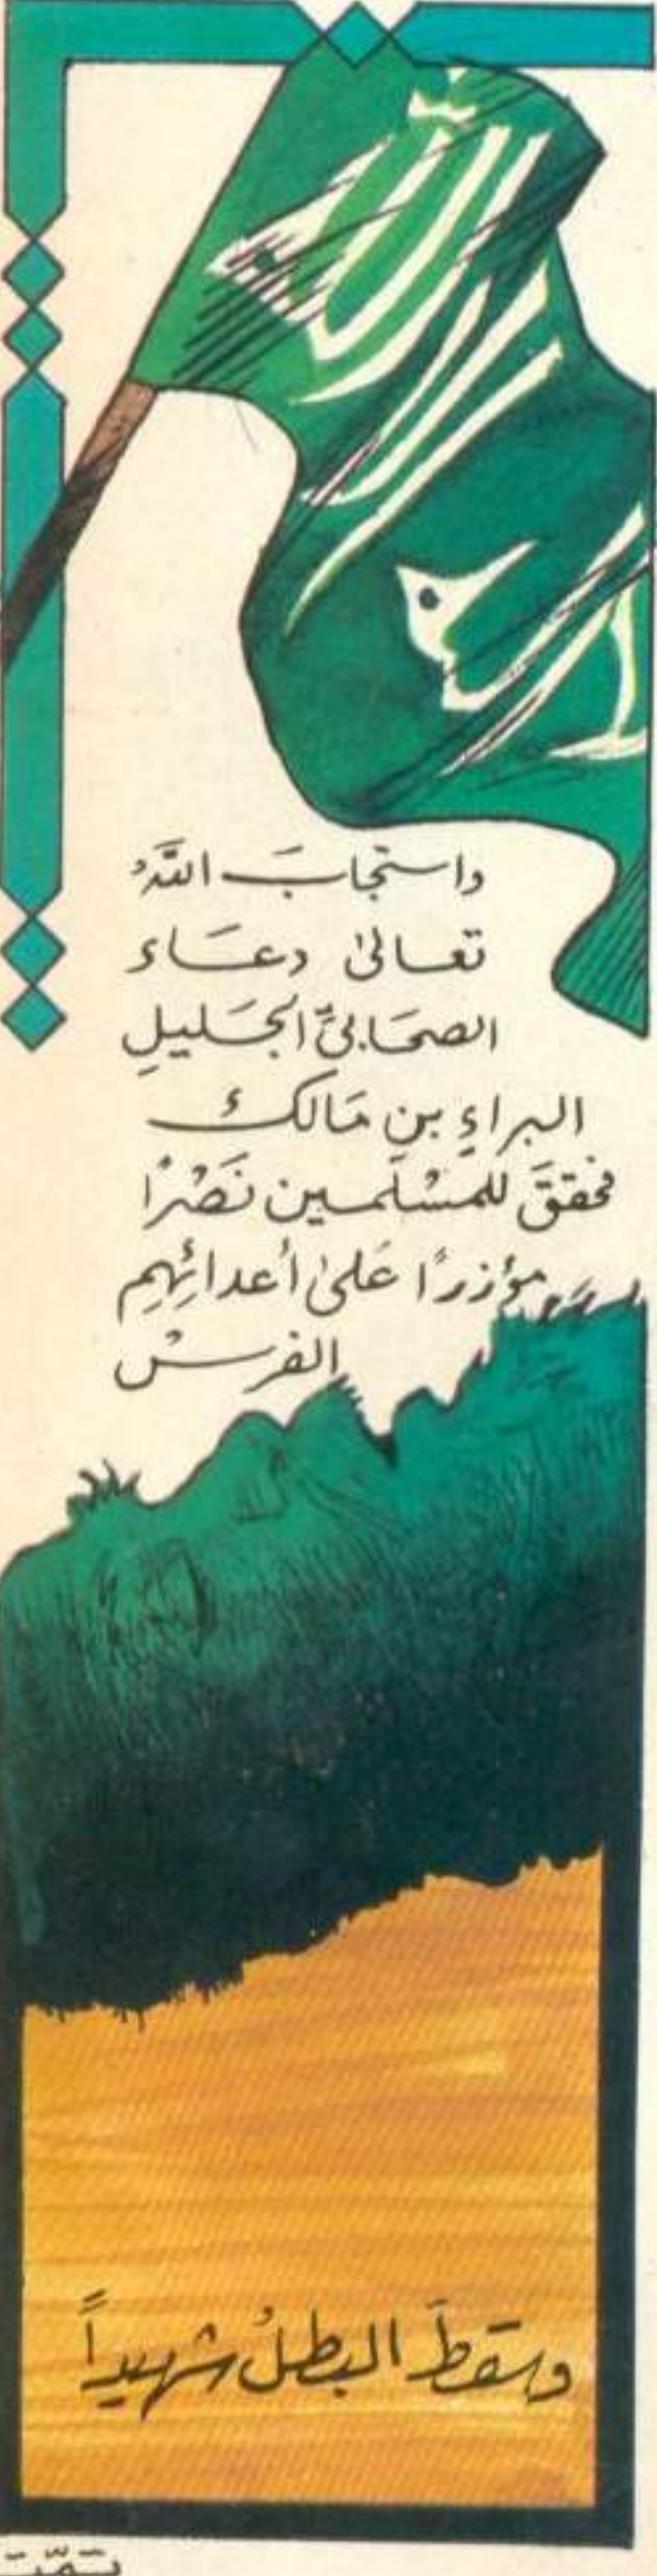 واستجابَ اللَّهُ
تعالىٰ دعَاء
الصحَابيِّ الجَليلِ
البراءِ بنِ مَالك
فحققَ للمسْلمين نَصْرًا
مؤزرًا عَلىٰ أعدائِهِم
الفرسْ
وسقطَ البطلُ شهيداً
تمّت